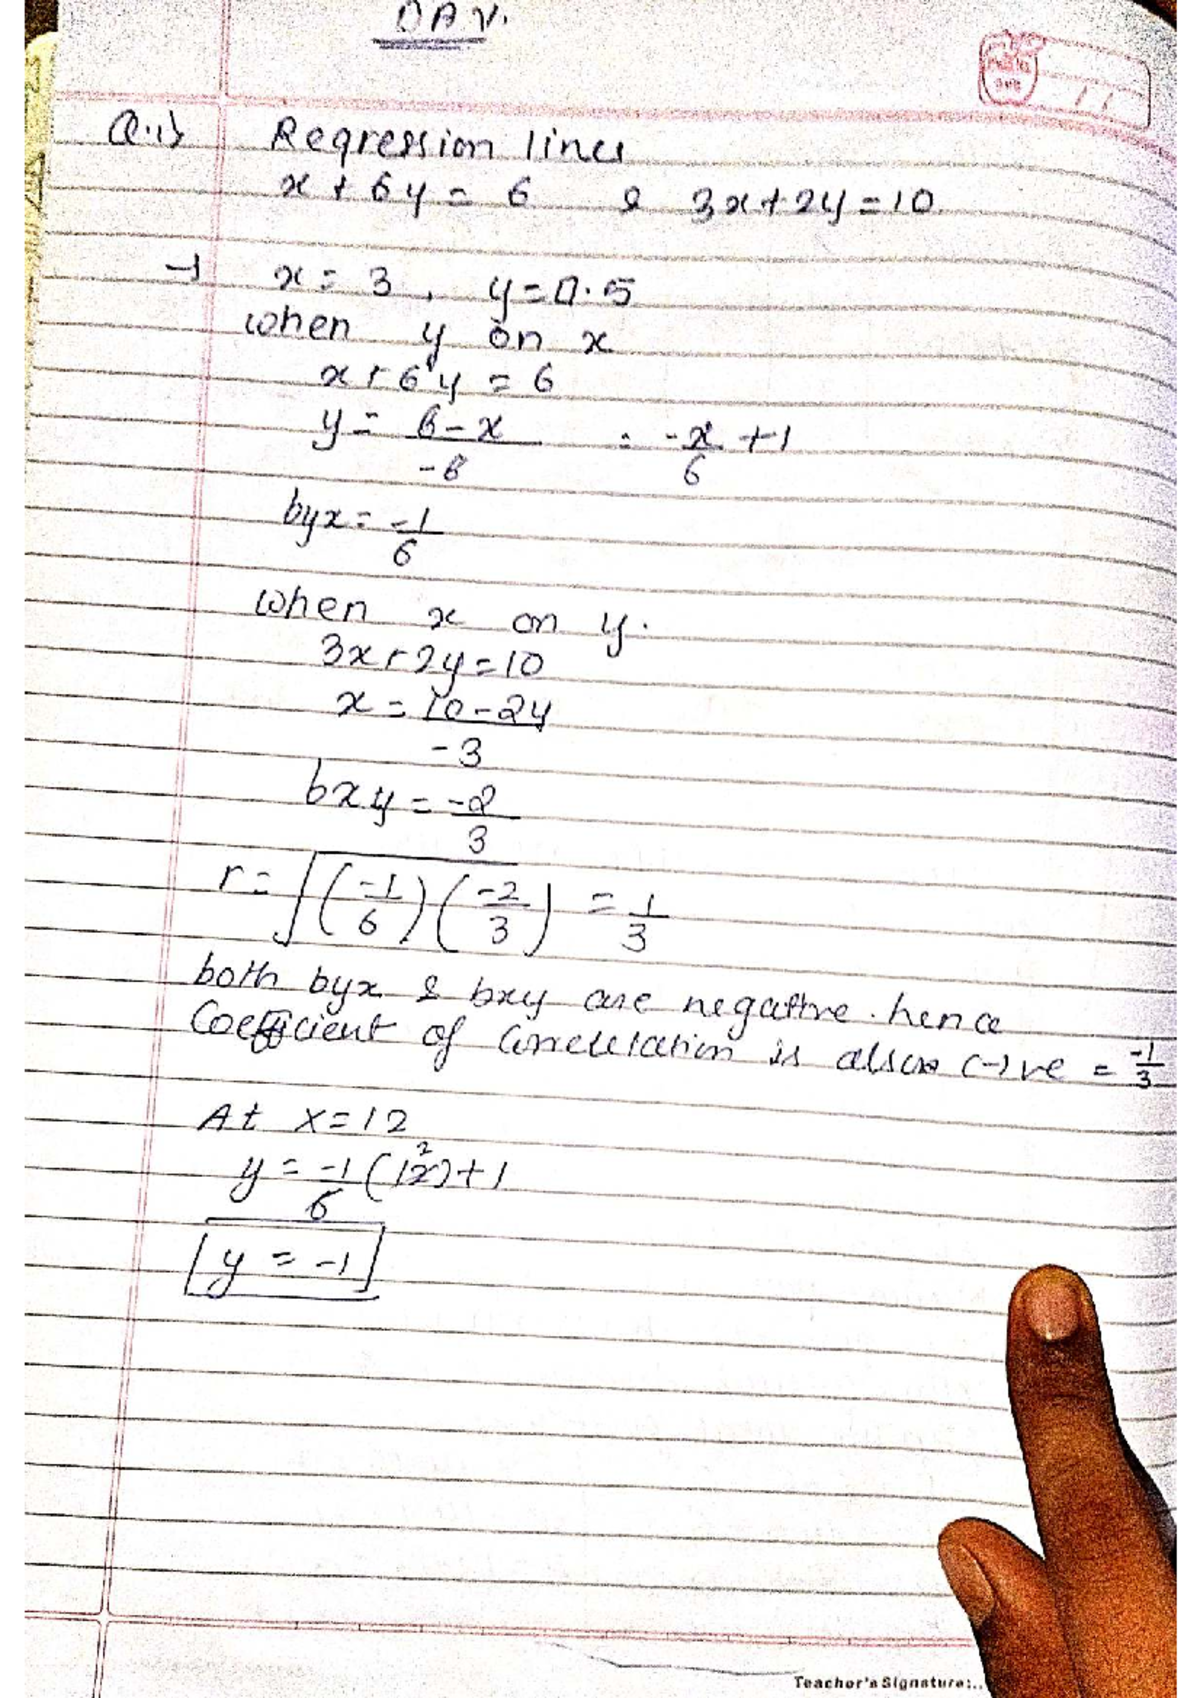 DAV.
Q.1) Regression lines
x + 6y = 6 & 3x+2y=10
→ x = 3 , y = 0.5
when y on x
x + 6y = 6
y = 6-x/-6 = -x/6 + 1
byx = -1/6
when x on y.
3x+2y=10
x = 10-2y/-3
bxy = -2/3
r = √(-1/6)(-2/3) = 1/3
both byx & bxy are negative. hence
Coefficient of is also (-)ve = -1/3
At x=12
y = -1/6 (12)+1
2
y = -1
Teacher's Signature:..